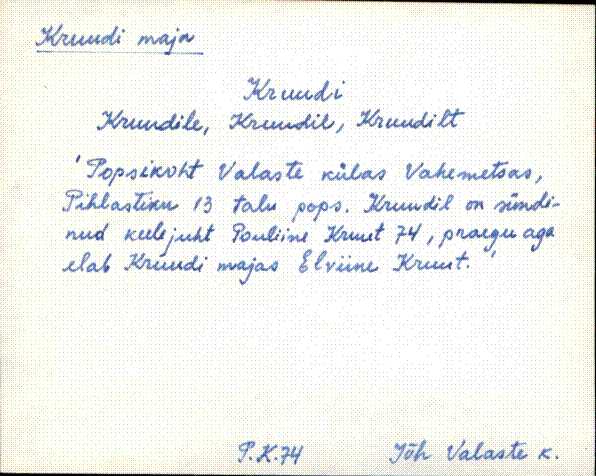 Kruudi maja
Kruudi
Kruudile, Kruudil, Kruudilt
'Popsikoht Valaste külas Vahemetsas,
Pihlastiku 13 talu pops. Kruudil on sündi-
nud keelejuht Pauliine Kruut 74, praegu aga
elab Kruudi majas Elviine Kruut.'
P.K.74 Jõh Valaste k.